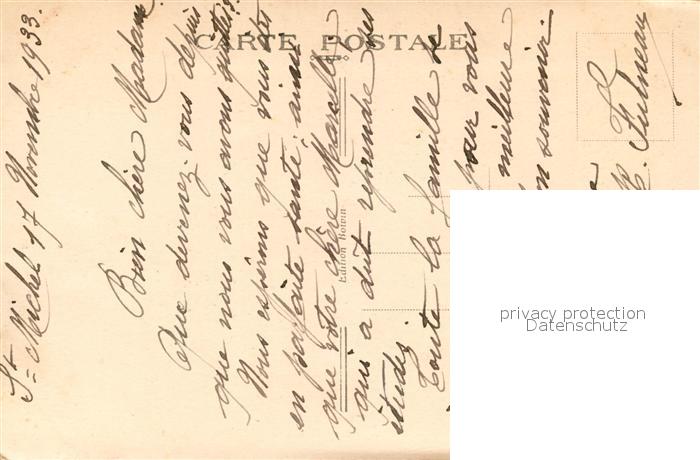 CARTE POSTALE
Edition Boivin
St Michel 17 Novembre 1933.
Bien chère Madame
Que devenez-vous depuis
que nous vous avons quittés.
Nous espérons que vous êtes
en parfaite santé, ainsi
que votre chère Marcelle
qui a dut reprendre ses
études
Toute la famille
pour vous
meilleure
souvenir
privacy protection
Datenschutz